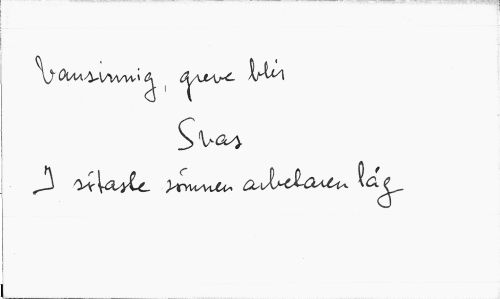 Vansinnig, greve blir
Svas
I sötaste sömnen arbetaren låg